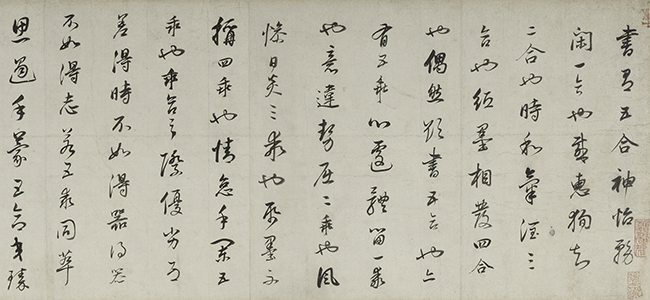 書有五合神怡務
閑一合也感惠徇知
二合也時和氣潤三
合也紙墨相發四合
也偶然欲書五合也亦
有五乖心遽體留一乖
也意違勢屈二乖也風
燥日炎三乖也紙墨不
稱四乖也情怠手闌五
乖也乖合之際優劣互
差得時不如得器得器
不如得志若五乖同萃
思遏手蒙五合交臻